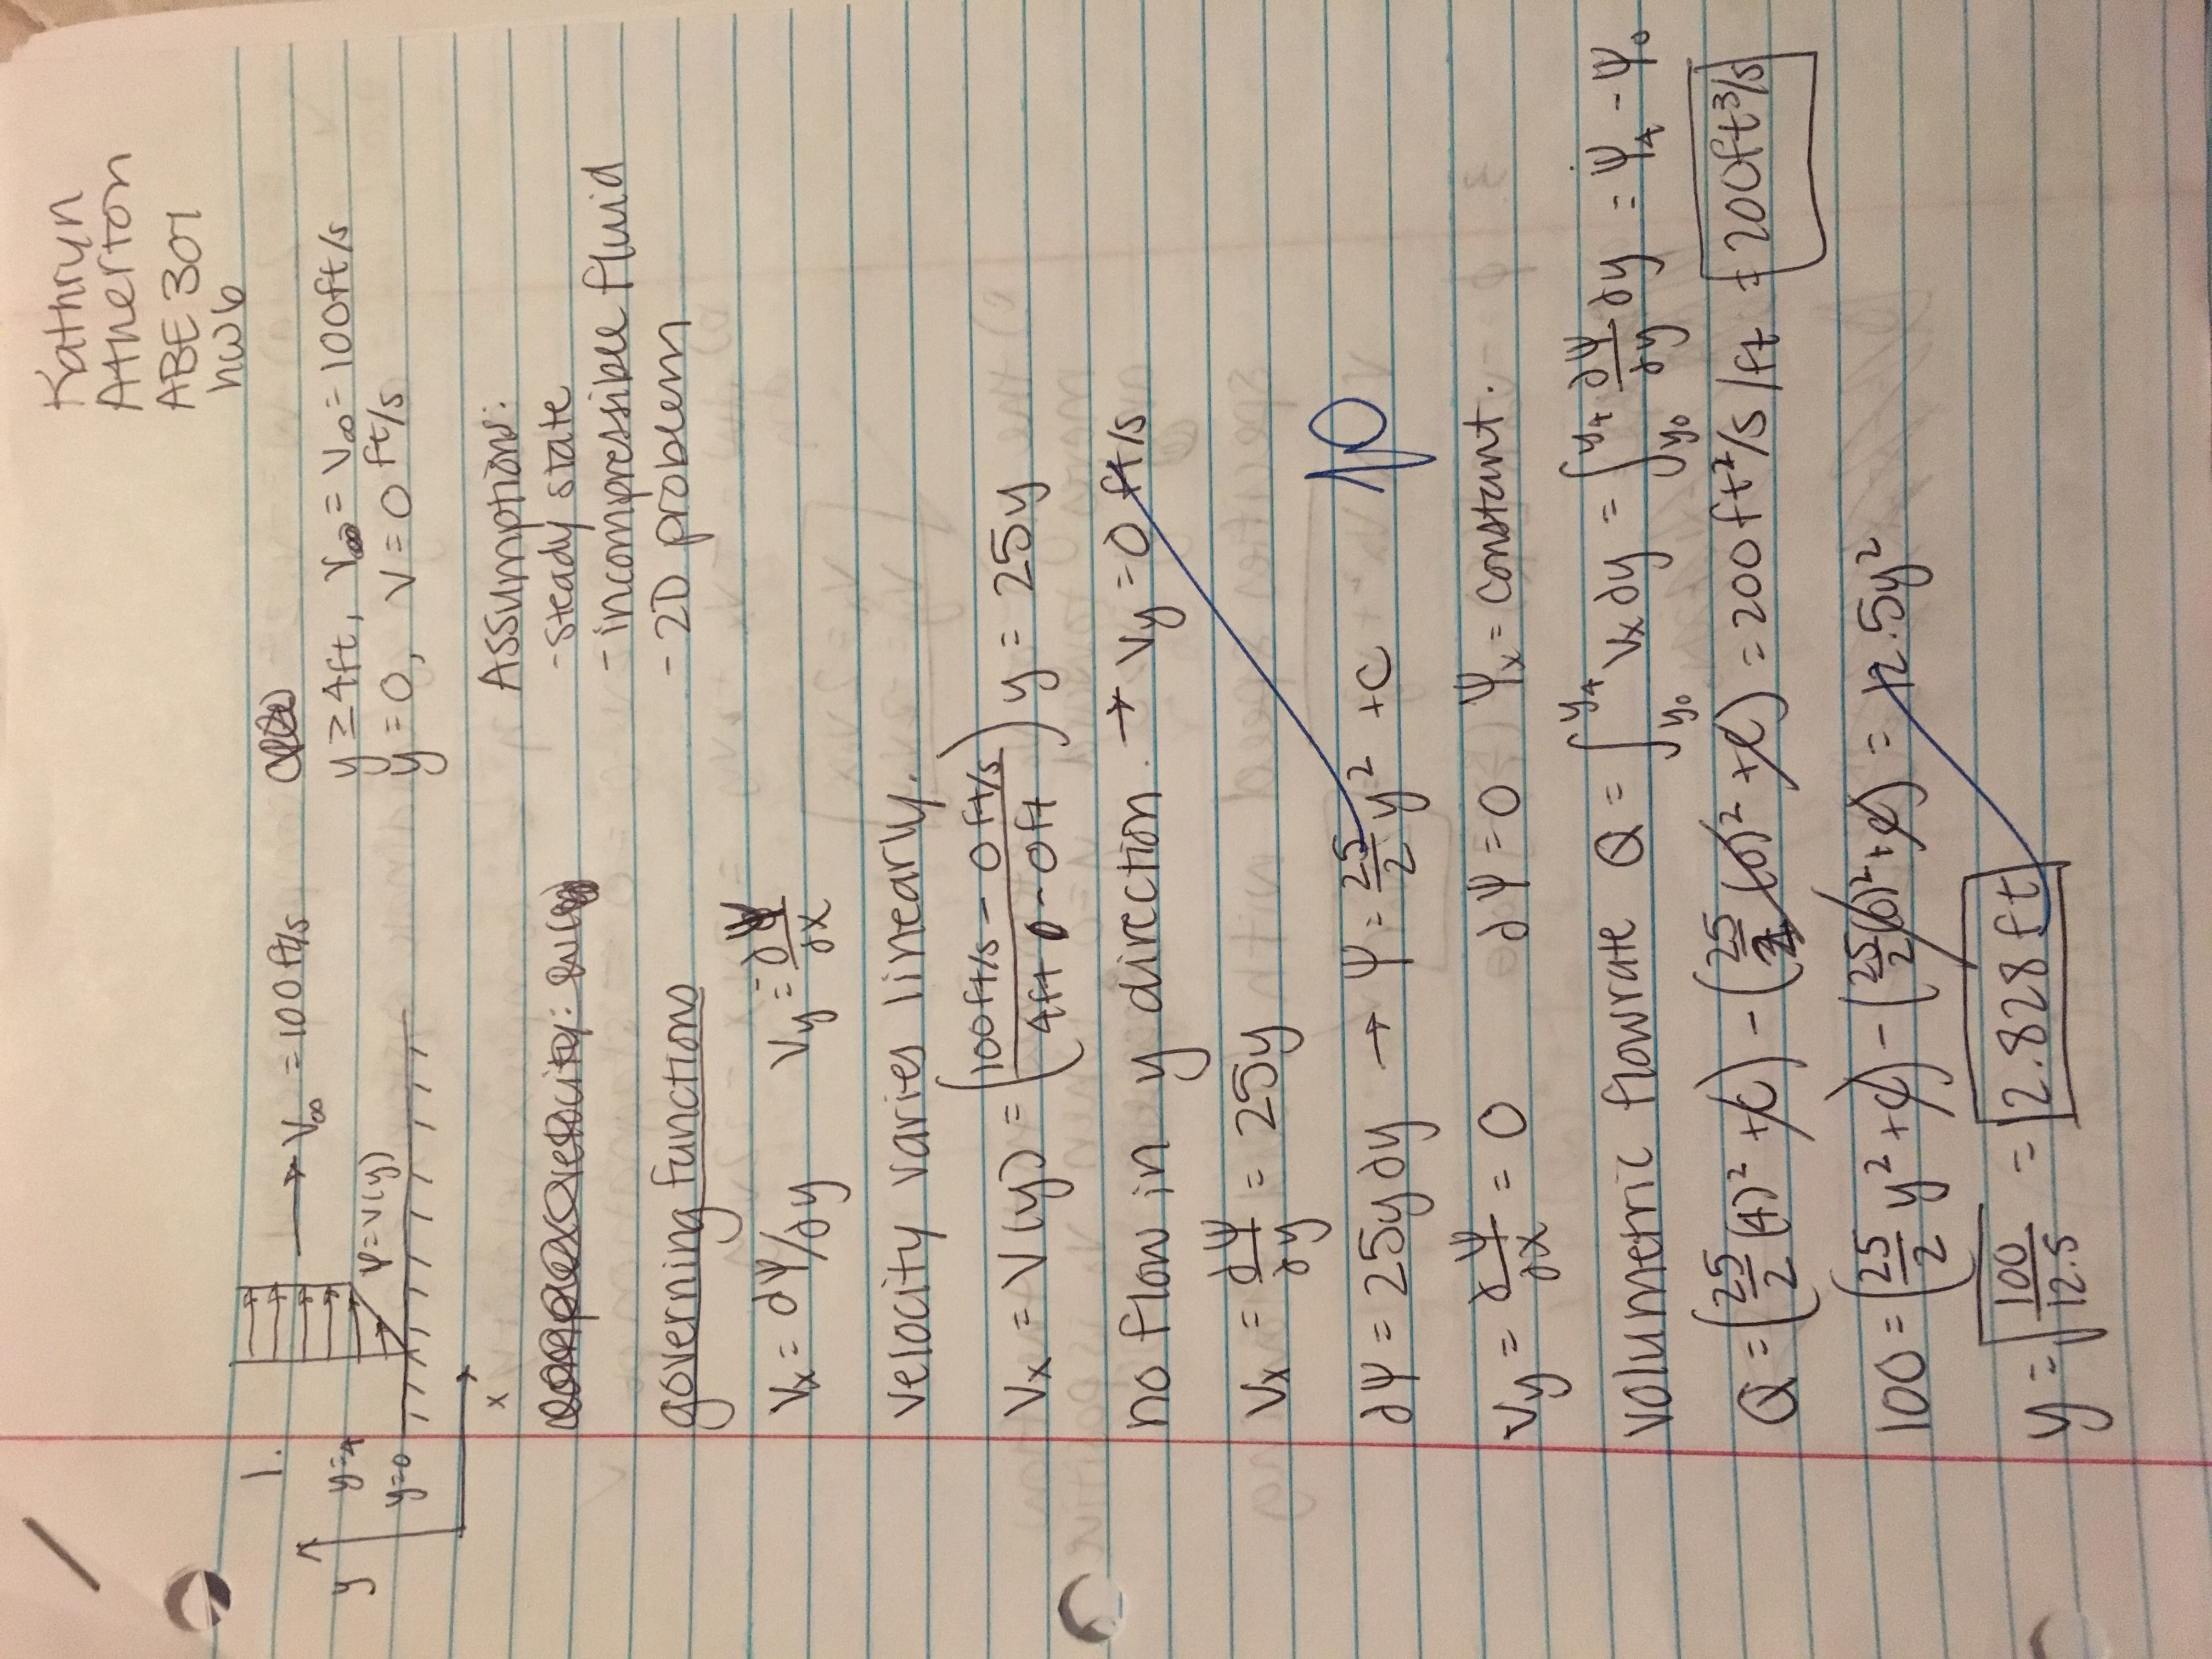 Kathryn
Atherton
ABE 301
hw 6
1.
V∞ = 100 ft/s
y
y=4
y=0
x
Ψ=V(y)
y ≥ 4ft, = V∞ = 100ft/s
y = 0, V = 0 ft/s
Assumptions:
- steady state
- incompressible fluid
- 2D problem
governing functions
Vx = ∂Ψ/∂y Vy = -∂Ψ/∂x
velocity varies linearly.
Vx = V(y) = (100ft/s - 0ft/s / 4ft - 0ft) y = 25y
no flow in y direction. → Vy = 0 ft/s
Vx = ∂Ψ/∂y = 25y
∂Ψ = 25y∂y → Ψ = 25/2 y² + C
10
Vy = ∂Ψ/∂x = 0 ∂Ψ = 0 Ψx = constant.
volumetric flowrate Q = ∫y₀^y₄ Vx ∂y = ∫y₀^y₄ ∂Ψ/∂y ∂y = Ψ₄ - Ψ₀
Q = (25/2 (4)² + C) - (25/2 (0)² + C) = 200 ft²/s /ft = 200ft³/s
100 = (25/2 y² + C) - (25/2 (0)² + C) = 12.5y²
y = √(100/12.5) = 2.828 ft